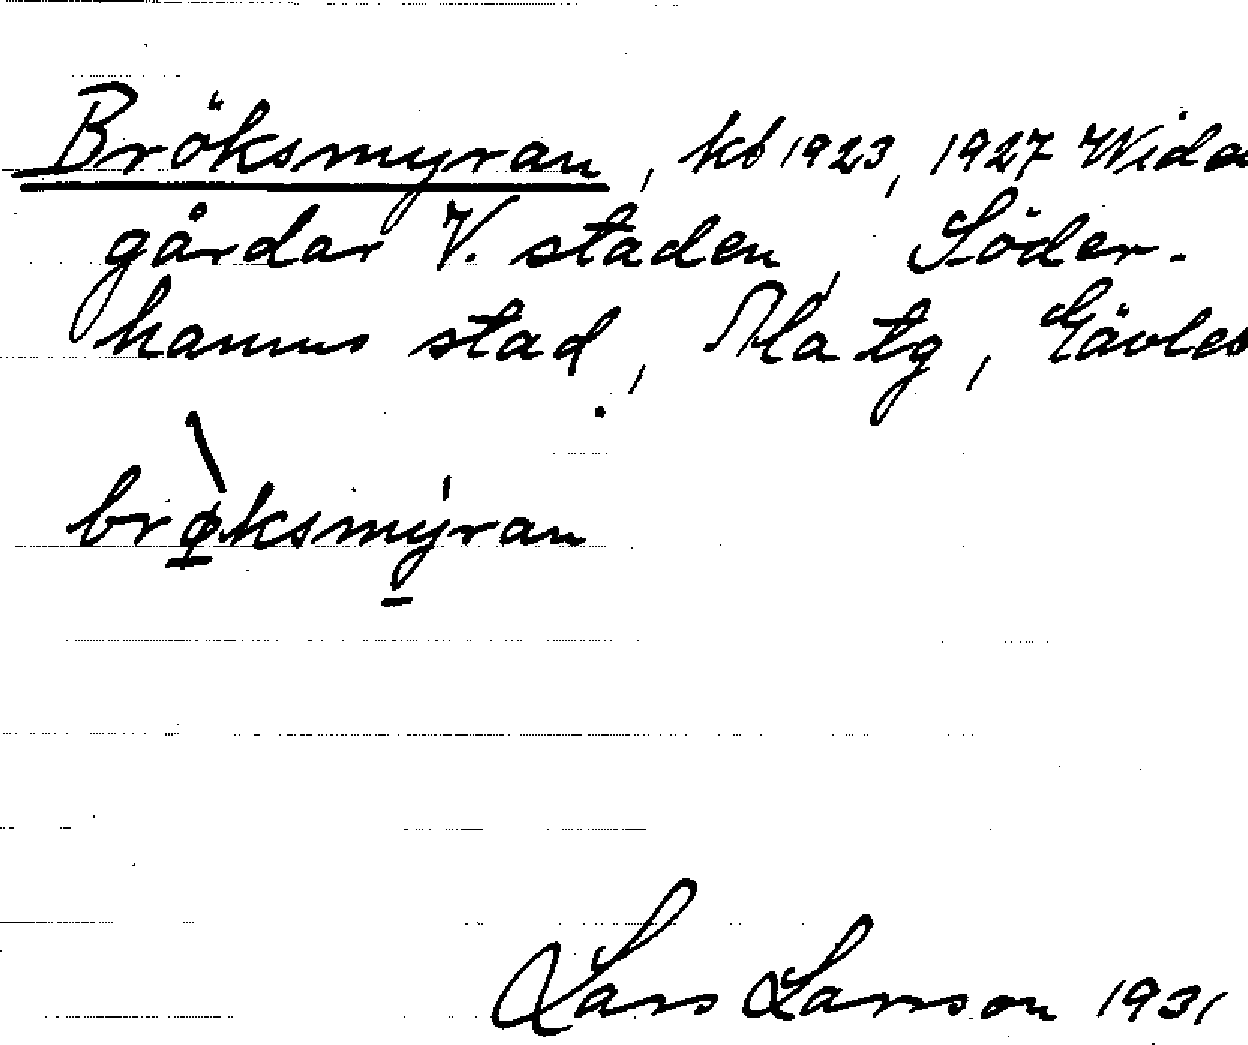 Bröksmyran, kb 1923, 1927 Wida
gårdar V. staden, Söder-
hamns stad, Ala tg, Gävles
brø̀ksmýran
Lars Larsson 1931